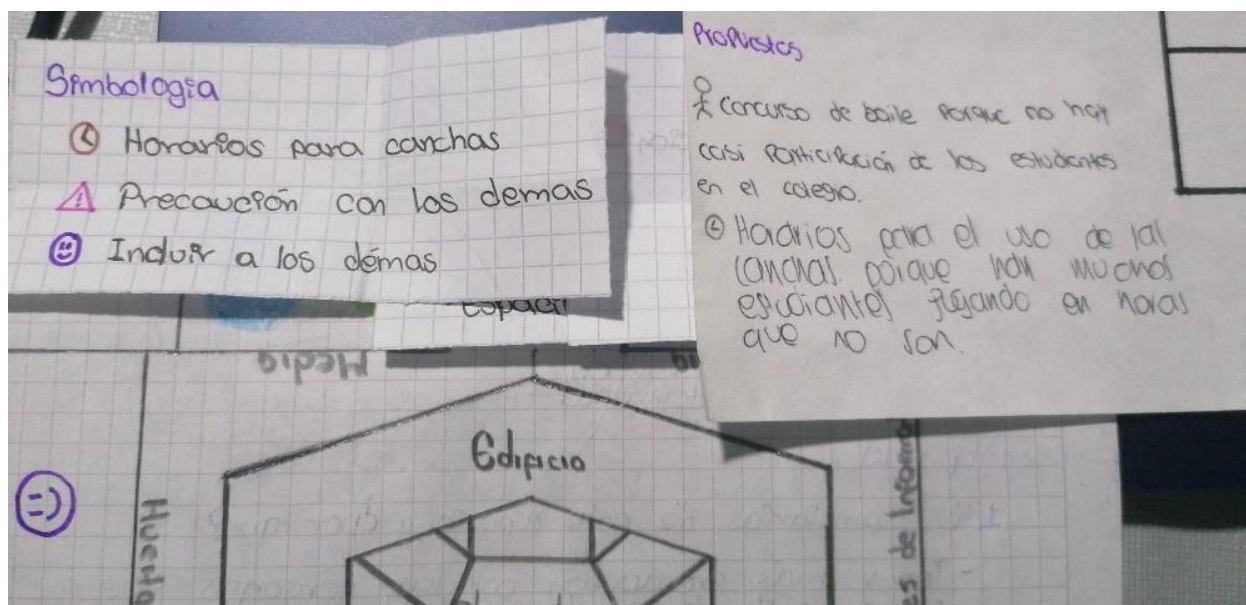 Simbología
Horarios para canchas
Precaución con los demas
Incluir a los démas
Propuestas
Concurso de baile porque no hay
casi participación de los estudiantes
en el colegio.
Horarios para el uso de las
canchas porque hay muchos
estudiantes jugando en horas
que no son.
Media
Edificio
Huerta
es de Inform